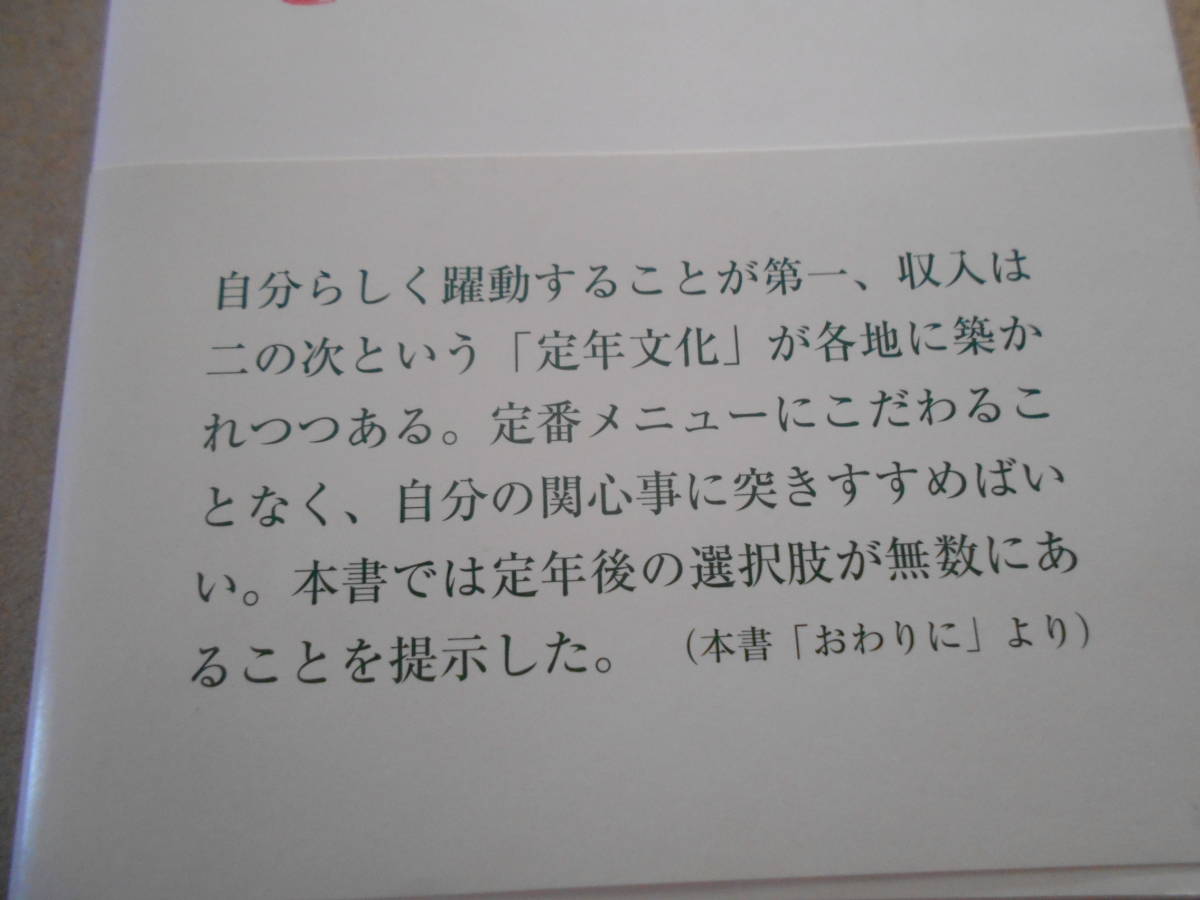 自分らしく躍動することが第一、収入は
二の次という「定年文化」が各地に築か
れつつある。定番メニューにこだわるこ
となく、自分の関心事に突きすすめばい
い。本書では定年後の選択肢が無数にあ
ることを提示した。　（本書「おわりに」より）